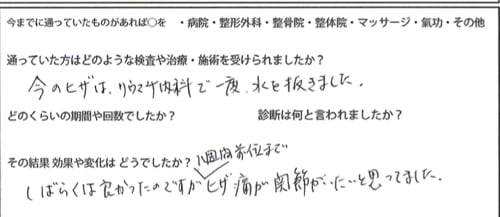 今までに通っていたものがあれば○を　・病院・整形外科・整骨院・整体院・マッサージ・氣功・その他
通っていた方はどのような検査や治療・施術を受けられましたか？
今のヒザは、リウマチ内科で一度、水を抜きました。
どのくらいの期間や回数でしたか？　診断は何と言われましたか？
その結果 効果や変化は どうでしたか？
週間前位まで
しばらくは良かったのですがヒザ痛が関節がいたいと思ってました。